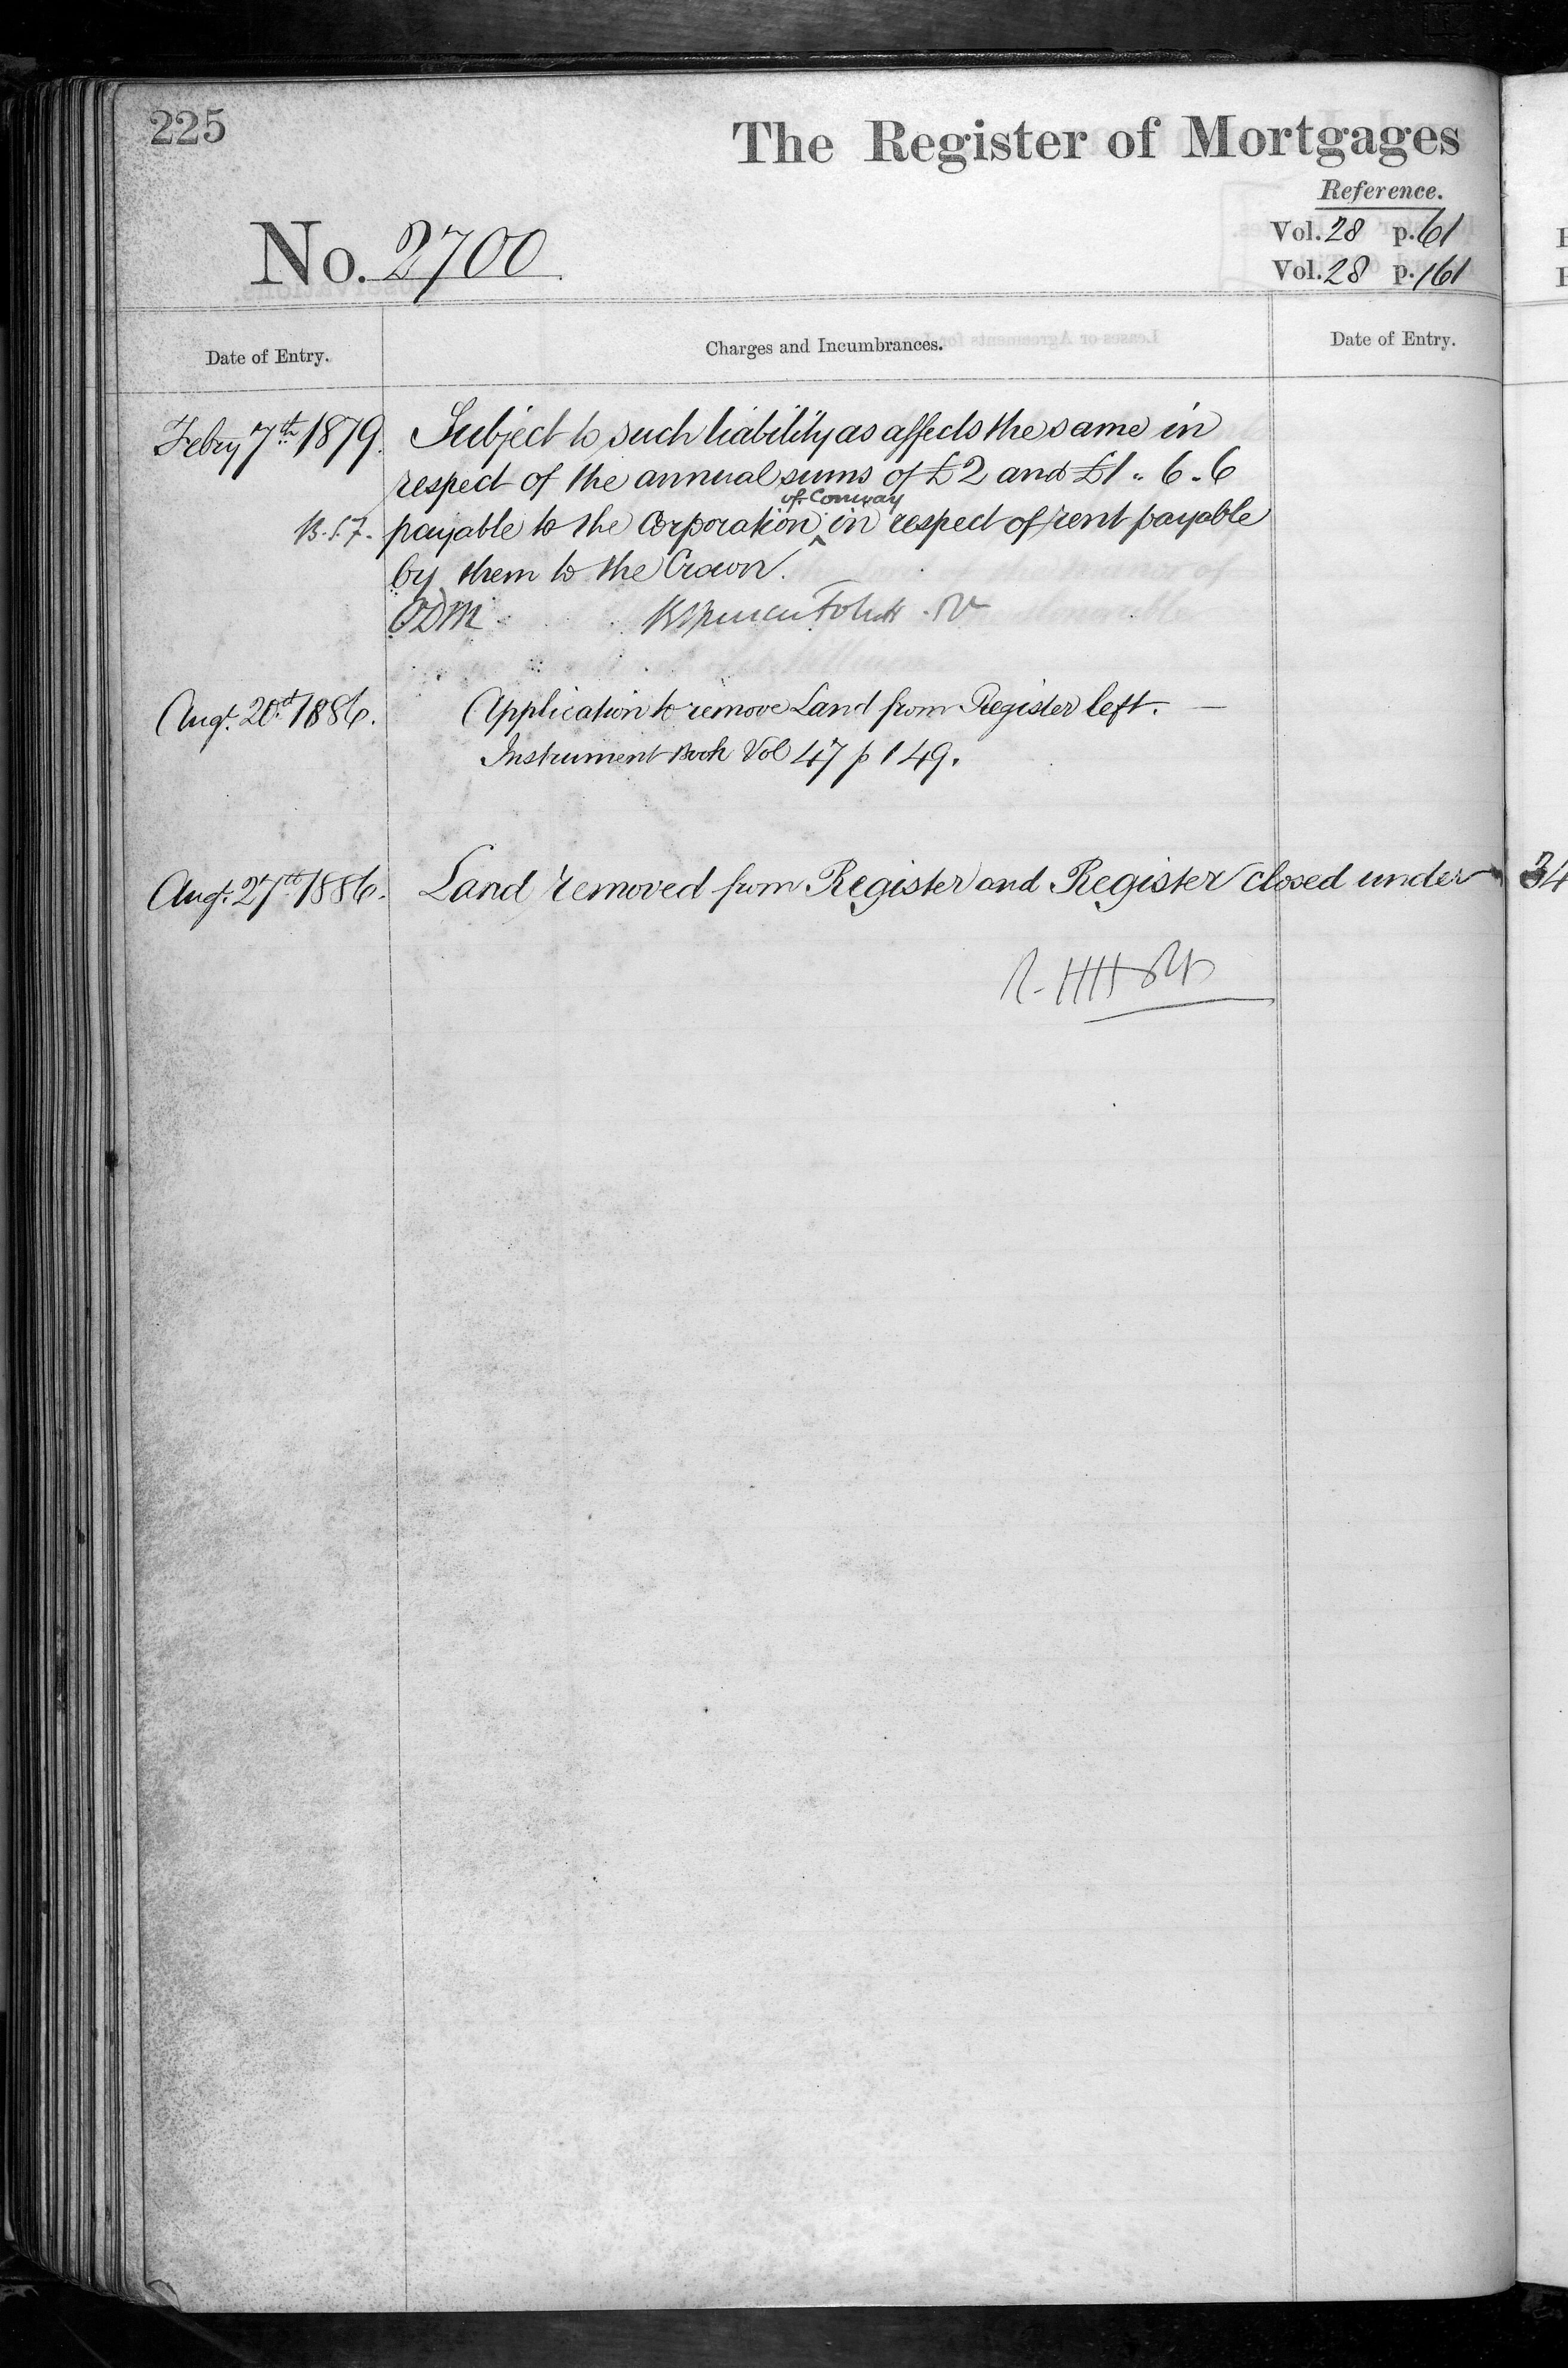 225
The Register of Mortgages
Reference.
No. 2700
Vol. 28 p. 61
Vol. 28 p. 161
Date of Entry.
Charges and Incumbrances.
Date of Entry.
Febry 7th 1879.
Subject to such liability as affects the same in
respect of the annual sums of £2 and £1 " 6 . 6
of Conway
B.S.F. payable to the Corporation ^ in respect of rent payable
by them to the Crown.
ODM
Augt. 20th 1886.
Application to remove Land from Register left. —
Instrument Book Vol 47 p 149.
Augt. 27th 1886.
Land removed from Register and Register closed under 34